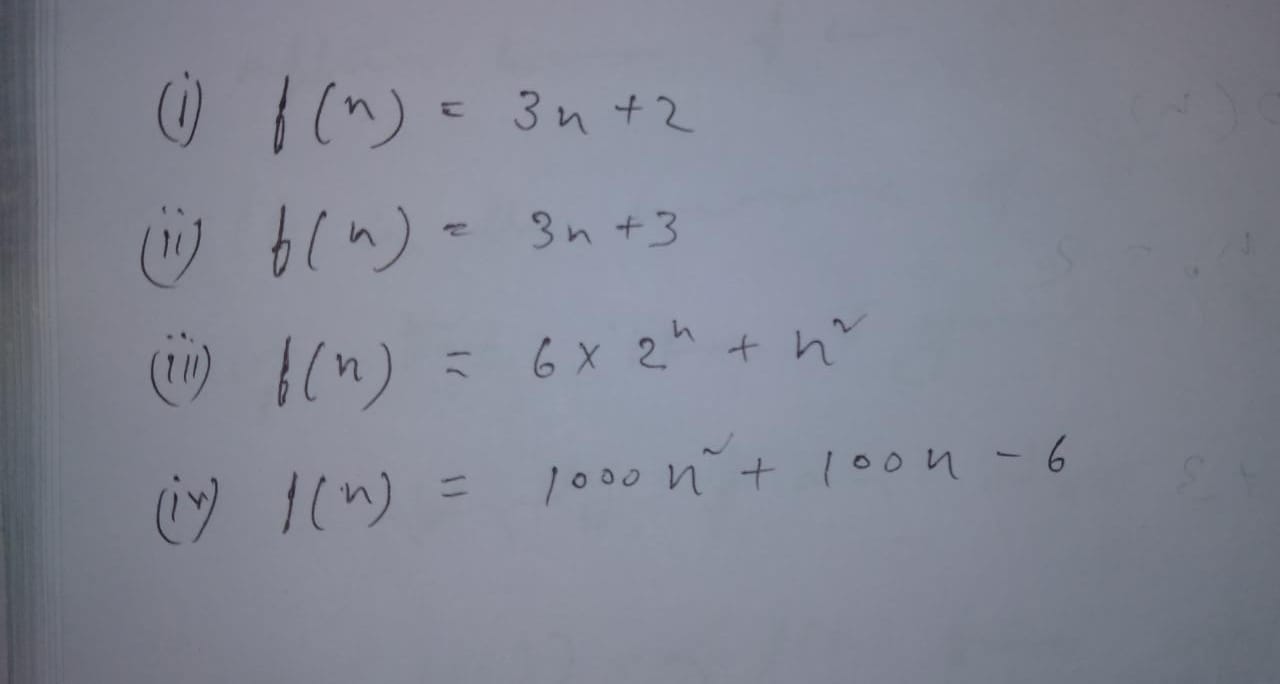 (i) f(n) = 3n + 2
(ii) f(n) = 3n + 3
(iii) f(n) = 6 × 2ⁿ + n²
(iv) f(n) = 1000n² + 100n - 6